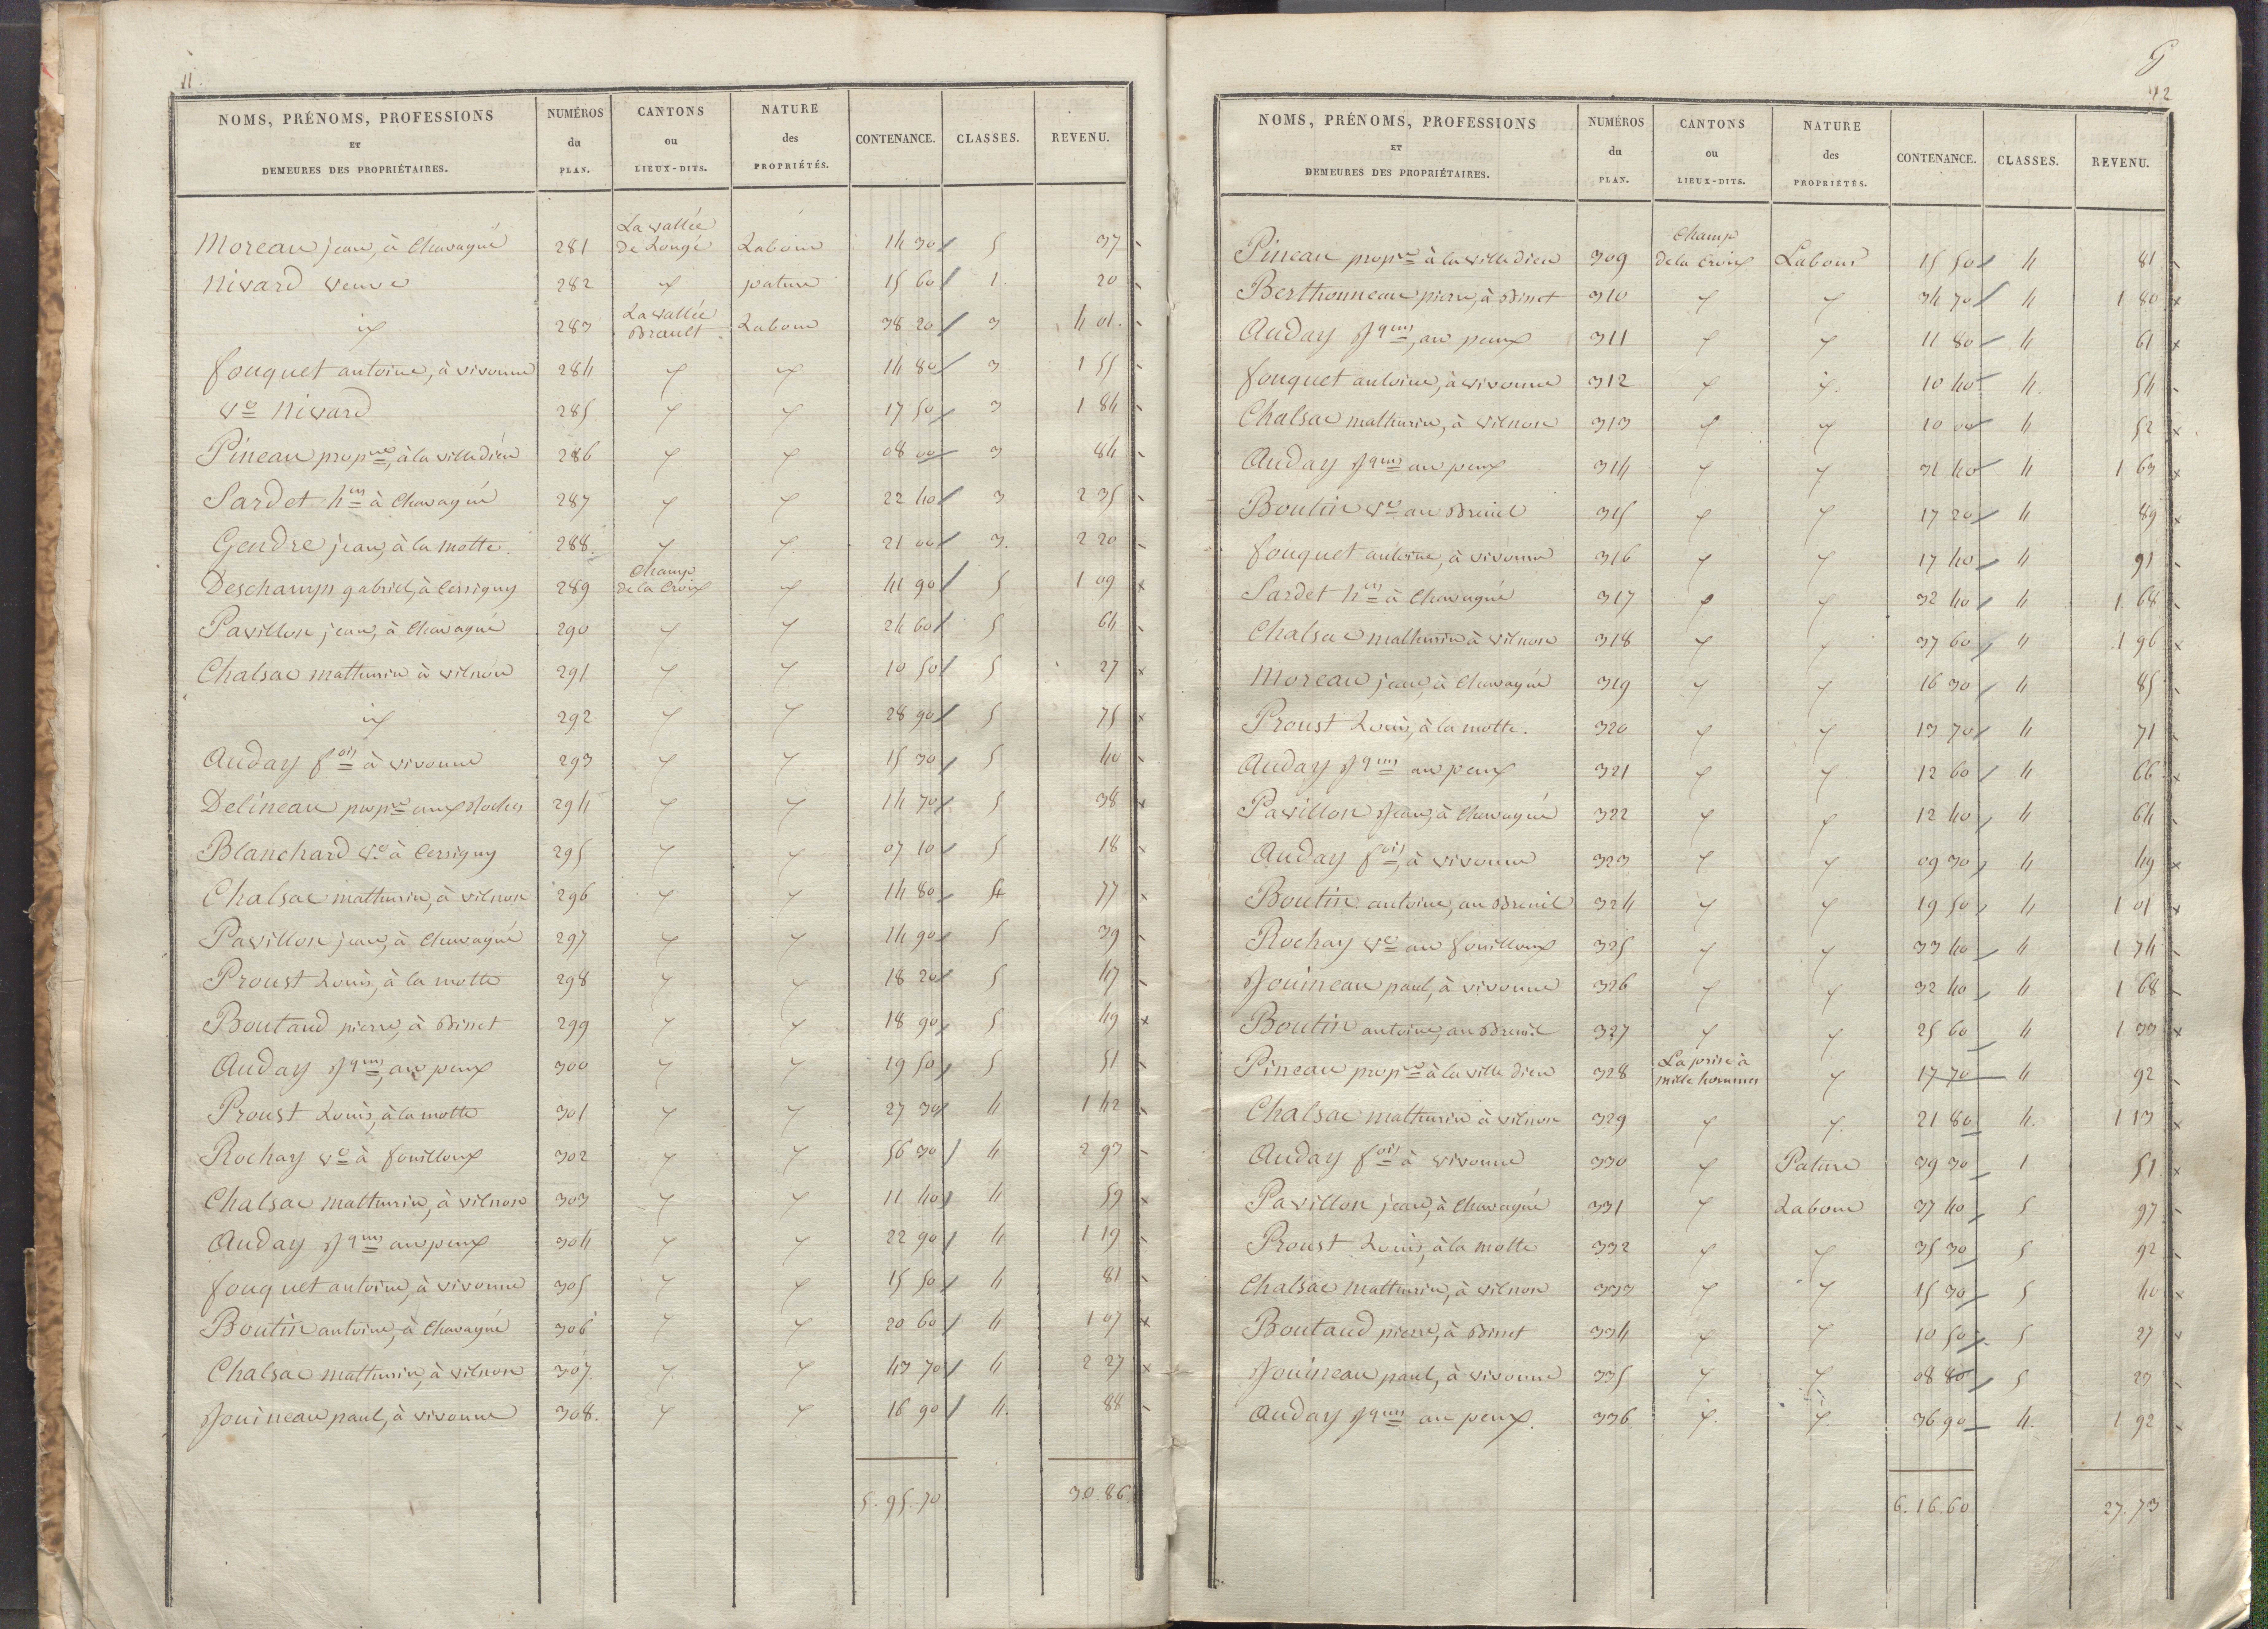 11.
NOMS, PRÉNOMS, PROFESSIONS ET DEMEURES DES PROPRIÉTAIRES. NUMÉROS du PLAN. CANTONS ou LIEUX-DITS. NATURE des PROPRIÉTÉS. CONTENANCE. CLASSES. REVENU.
Moreau jean, à Chavagné 281 La vallée de Longé Labour 14 30 5 37
Nivard veuve 282 " pature 15 60 1. 20
id 283 La vallée Brault Labour 38 20 3 4 01.
fouquet antoine, à vivonne 284 " " 14 80 3 1 55
ve Nivard 285 " " 17 50 3 1 84
Pineau propre, à la ville dieu 286 " " 08 00 3 84
Sardet hers à Chavagné 287 " " 22 40 3 2 35
Gendre jean, à la motte. 288. " " 21 00 3. 2 20
Deschamps gabriel, à Cersigny 289 Champ de la Croix " 41 90 5 1 09
Pavillon jean, à Chavagné 290 " " 24 60 5 64
Chalsac mathurin à vilnon 291 " " 10 50 5 27
id 292 " " 28 90 5 75
Auday fois à vivonne 293 " " 15 30 5 40
Delineau propre aux Roches 294 " " 14 70 5 38
Blanchard ve à Cersigny 295 " " 07 10 5 18
Chalsac mathurin, à vilnon 296 " " 14 80 4 77
Pavillon jean, à Chavagné 297 " " 14 90 5 39
Proust Louis, à la motte 298 " " 18 20 5 47
Boutaud pierre, à Binet 299 " " 18 90 5 49
Auday Jques, au peux 300 " " 19 50 5 51
Proust Louis, à la motte 301 " " 27 30 4 1 42
Rochay ve à fouilloux 302 " " 56 30 4 2 93
Chalsac mathurin, à vilnon 303 " " 11 40 4 59
Auday Jques au peux 304 " " 22 90 4 1 19
fouquet antoine, à vivonne 305 " " 15 50 4 81
Boutin antoine, à Chavagné 306 " " 20 60 4 1 07
Chalsac mathurin, à vilnon 307. " " 43 70 4 2 27
Jouineau paul, à vivonne 308. " " 16 90 4. 88
5. 95. 70 30. 86
42
NOMS, PRÉNOMS, PROFESSIONS ET DEMEURES DES PROPRIÉTAIRES. NUMÉROS du PLAN. CANTONS ou LIEUX-DITS. NATURE des PROPRIÉTÉS. CONTENANCE. CLASSES. REVENU.
Pineau propre à la ville dieu 309 Champ de la Croix Labour 15 50 4 81
Berthonneau pierre, à Binet 310 " " 34 70 4 1 80
Auday Jques, au peux 311 " " 11 80 4 61
fouquet antoine, à vivonne 312 " " 10 40 4. 54
Chalsac mathurin, à vilnon 313 " " 10 00 4 52
Auday Jques au peux 314 " " 31 40 4 1 63
Boutin ve au Breuil 315 " " 17 20 4 89
fouquet antoine, à vivonne 316 " " 17 40 4 91
Sardet hers à Chavagné 317 " " 32 40 4 1. 68
Chalsac mathurin à vilnon 318 " " 37 60 4 1 96
Moreau jean, à Chavagné 319 " " 16 30 4 85
Proust Louis, à la motte. 320 " " 13 70 4 71
Auday Jques au peux 321 " " 12 60 4 66
Pavillon Jean, à Chavagné 322 " " 12 40 4 64
Auday fois, à vivonne 323 " " 09 30 4 49
Boutin antoine, au Breuil 324 " " 19 50 4 1 01
Rochay ve au fouilloux 325 " " 33 40 4 1 74
Jouineau paul, à vivonne 326 " " 32 40 4 1 68
Boutin antoine, au Breuil 327 " " 25 60 4 1 33
Pineau propre à la ville dieu 328 La prise à mille hommes " 17 70 4 92
Chalsac mathurin à vilnon 329 " " 21 80 4. 1 13
Auday fois à vivonne 330 " Pature 39 30 1 51
Pavillon jean, à Chavagné 331 " Labour 37 40 5 97
Proust Louis, à la motte 332 " " 35 30 5 92
Chalsac Mathurin, à vilnon 333 " " 15 30 5 40
Boutaud pierre, à Binet 334 " " 10 50 5 27
Jouineau paul, à vivonne 335 " " 08 80 5 23
Auday Jques au peux. 336 " " 36 90 4. 1 92
6. 16. 60 27. 73